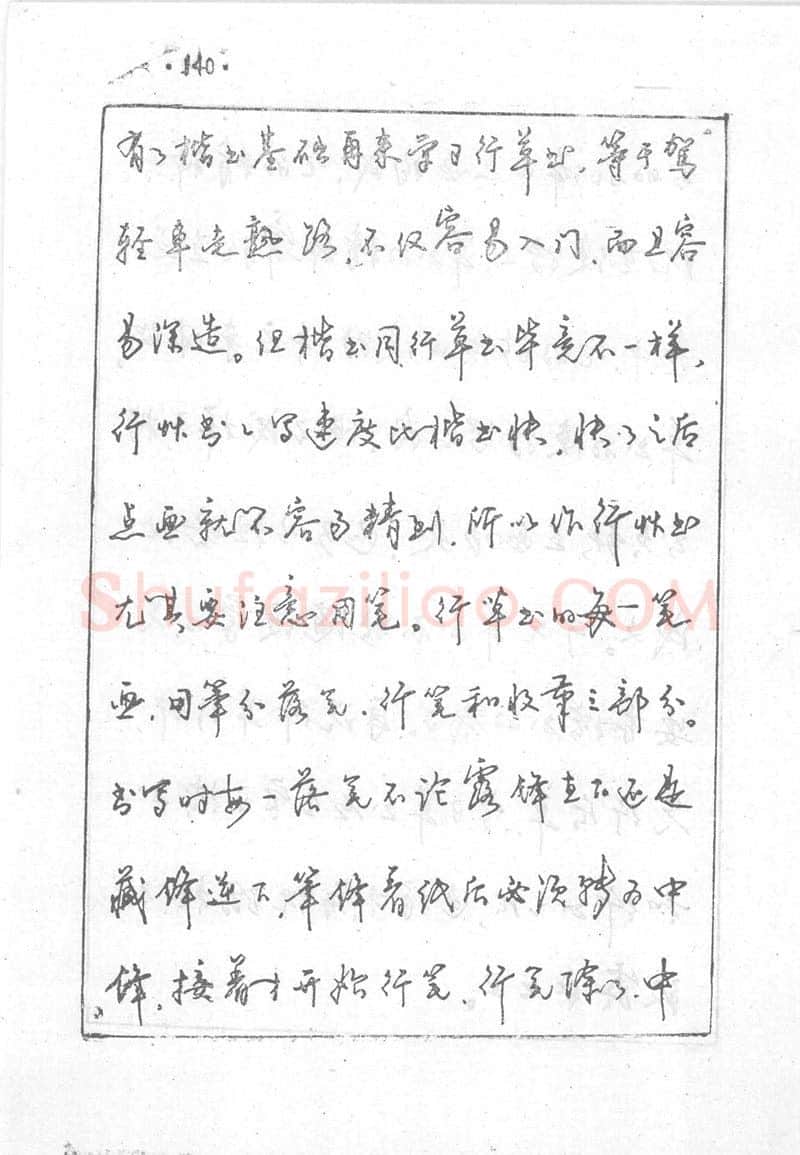 ·140·
有了楷书基础再来学习行草书，等于驾
轻车走熟路，不仅容易入门，而且容
易深造。但楷书同行草书毕竟不一样，
行草书书写速度比楷书快，快了之后
点画就不容易精到，所以作行草书
尤其要注意用笔。行草书的每一笔
画，用笔分落笔、行笔和收笔三部分。
书写时每一落笔不论露锋直下还是
藏锋逆下，笔锋着纸后必须转为中
锋，接着才开始行笔。行笔除以中
Shufaziliao.COM